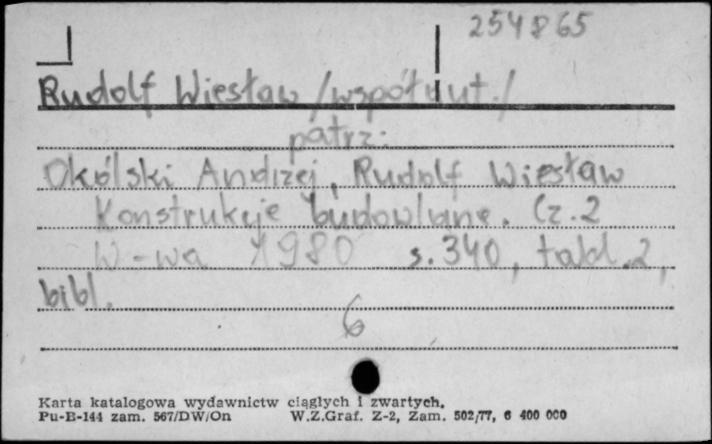 254865
Rudolf Wiesław /współaut./
patrz:
Okólski Andrzej, Rudolf Wiesław
Konstrukcje budowlane. Cz. 2
W-wa 1980 s. 340, tabl. 2,
bibl.
6
Karta katalogowa wydawnictw ciągłych i zwartych.
Pu-B-144 zam. 567/DW/On W.Z.Graf. Z-2, Zam. 502/77, 6 400 000